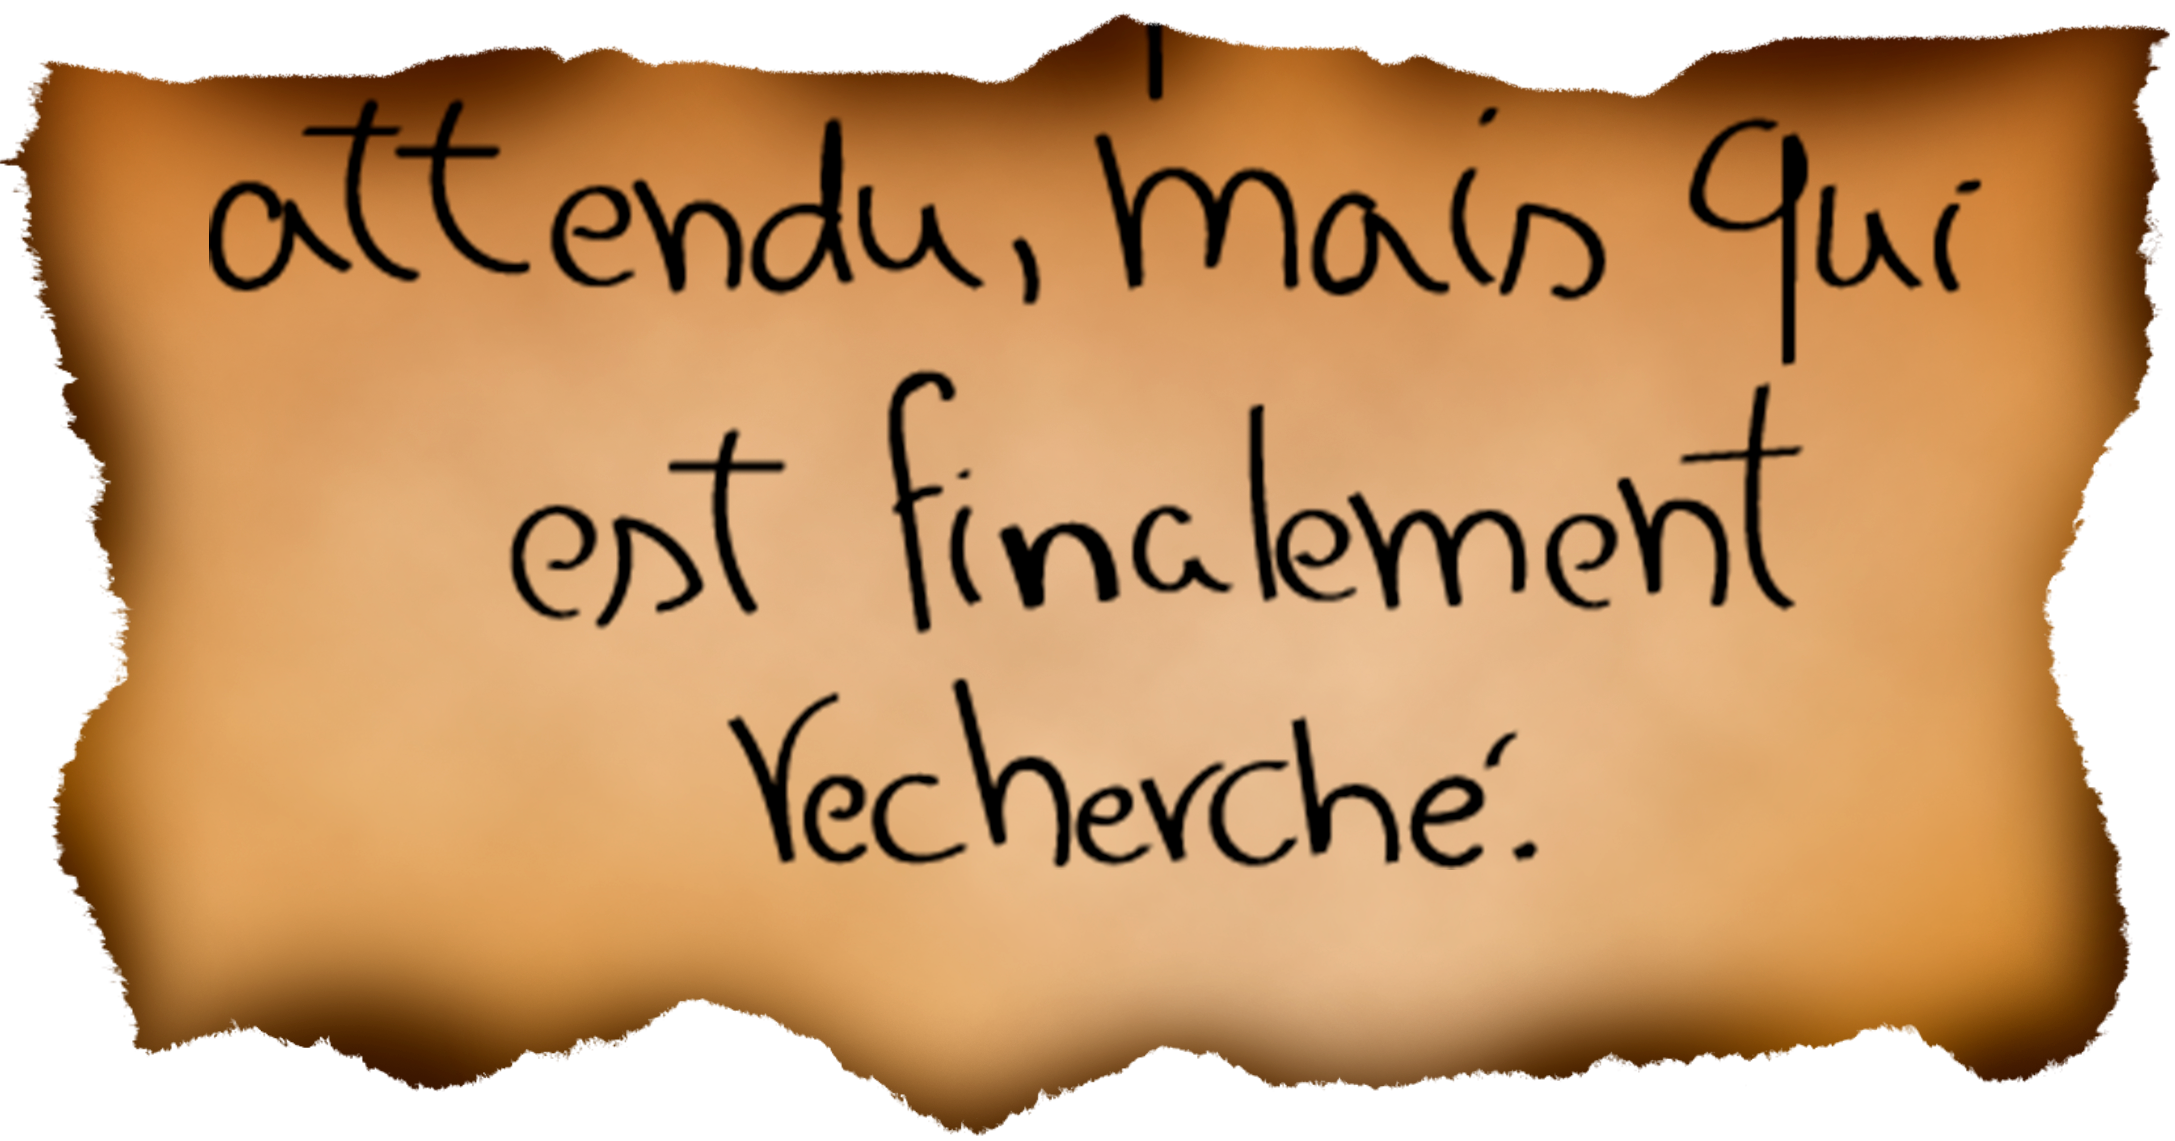 attendu, mais qui
est finalement
recherché.